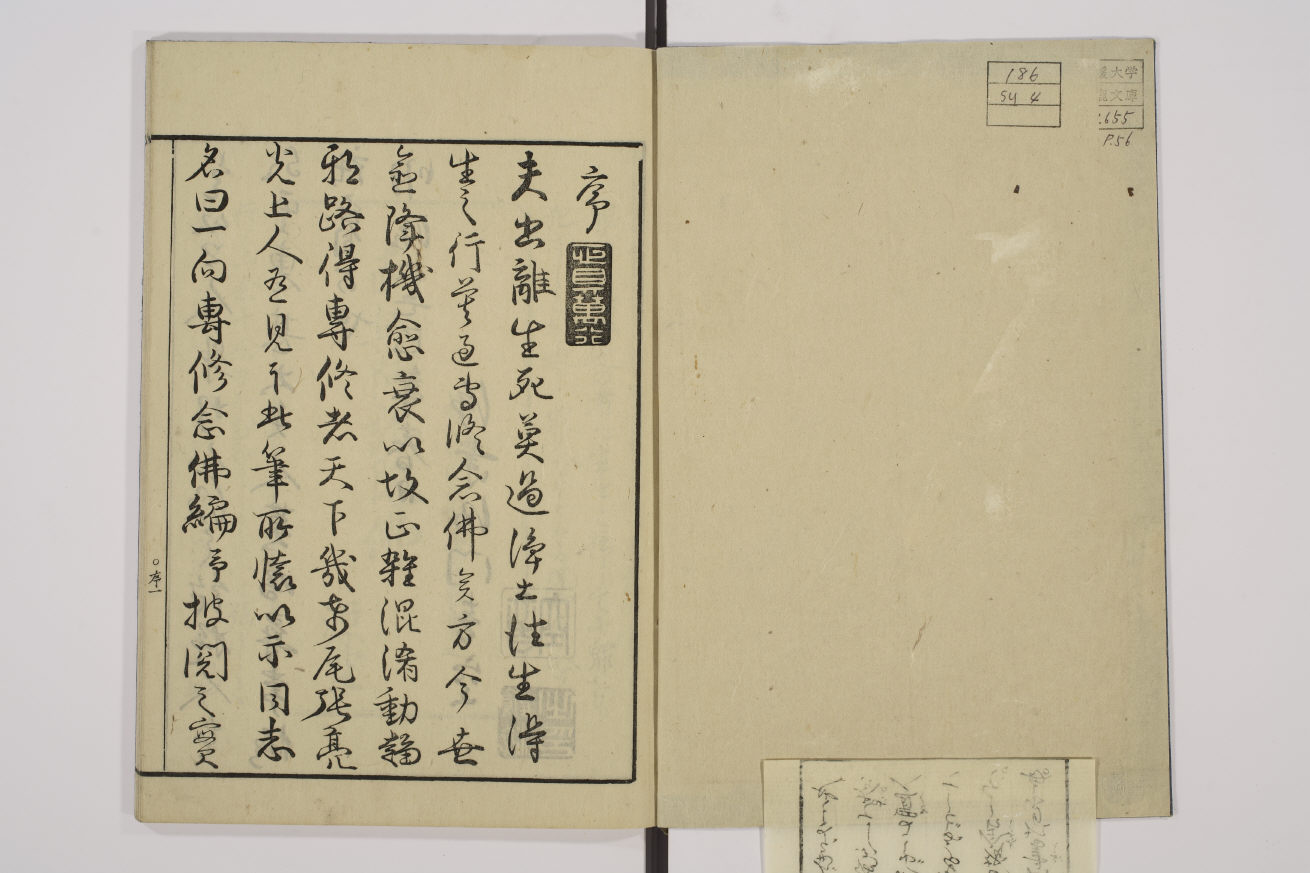 186
SY 4
大学
文庫
655
P.56
序
夫出離生死莫過淨土往生得
生之行莫過專修念佛矣方今世
逾降機愈衰以故正雜混淆動輸
邪路得專修者天下幾希尾張亮
光上人有見于此筆所懐以示同志
名曰一向專修念佛編予披閲之實
序一